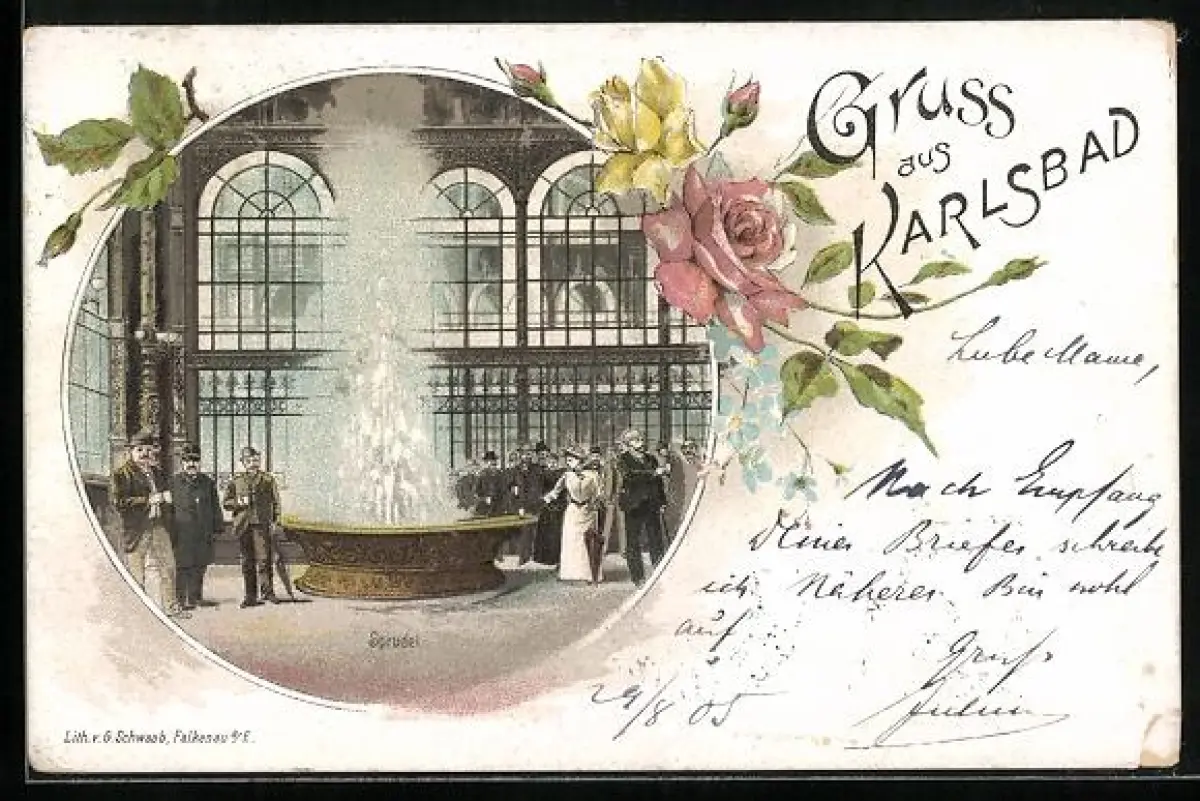 Gruss
aus
Karlsbad
Liebe Mama,
Nach Empfang
Deines Briefes schreibe
ich Näheres Bin wohl
auf
Gruß
29/8 05
Sprudel
Lith. v. G. Schwaab, Falkenau a/E.